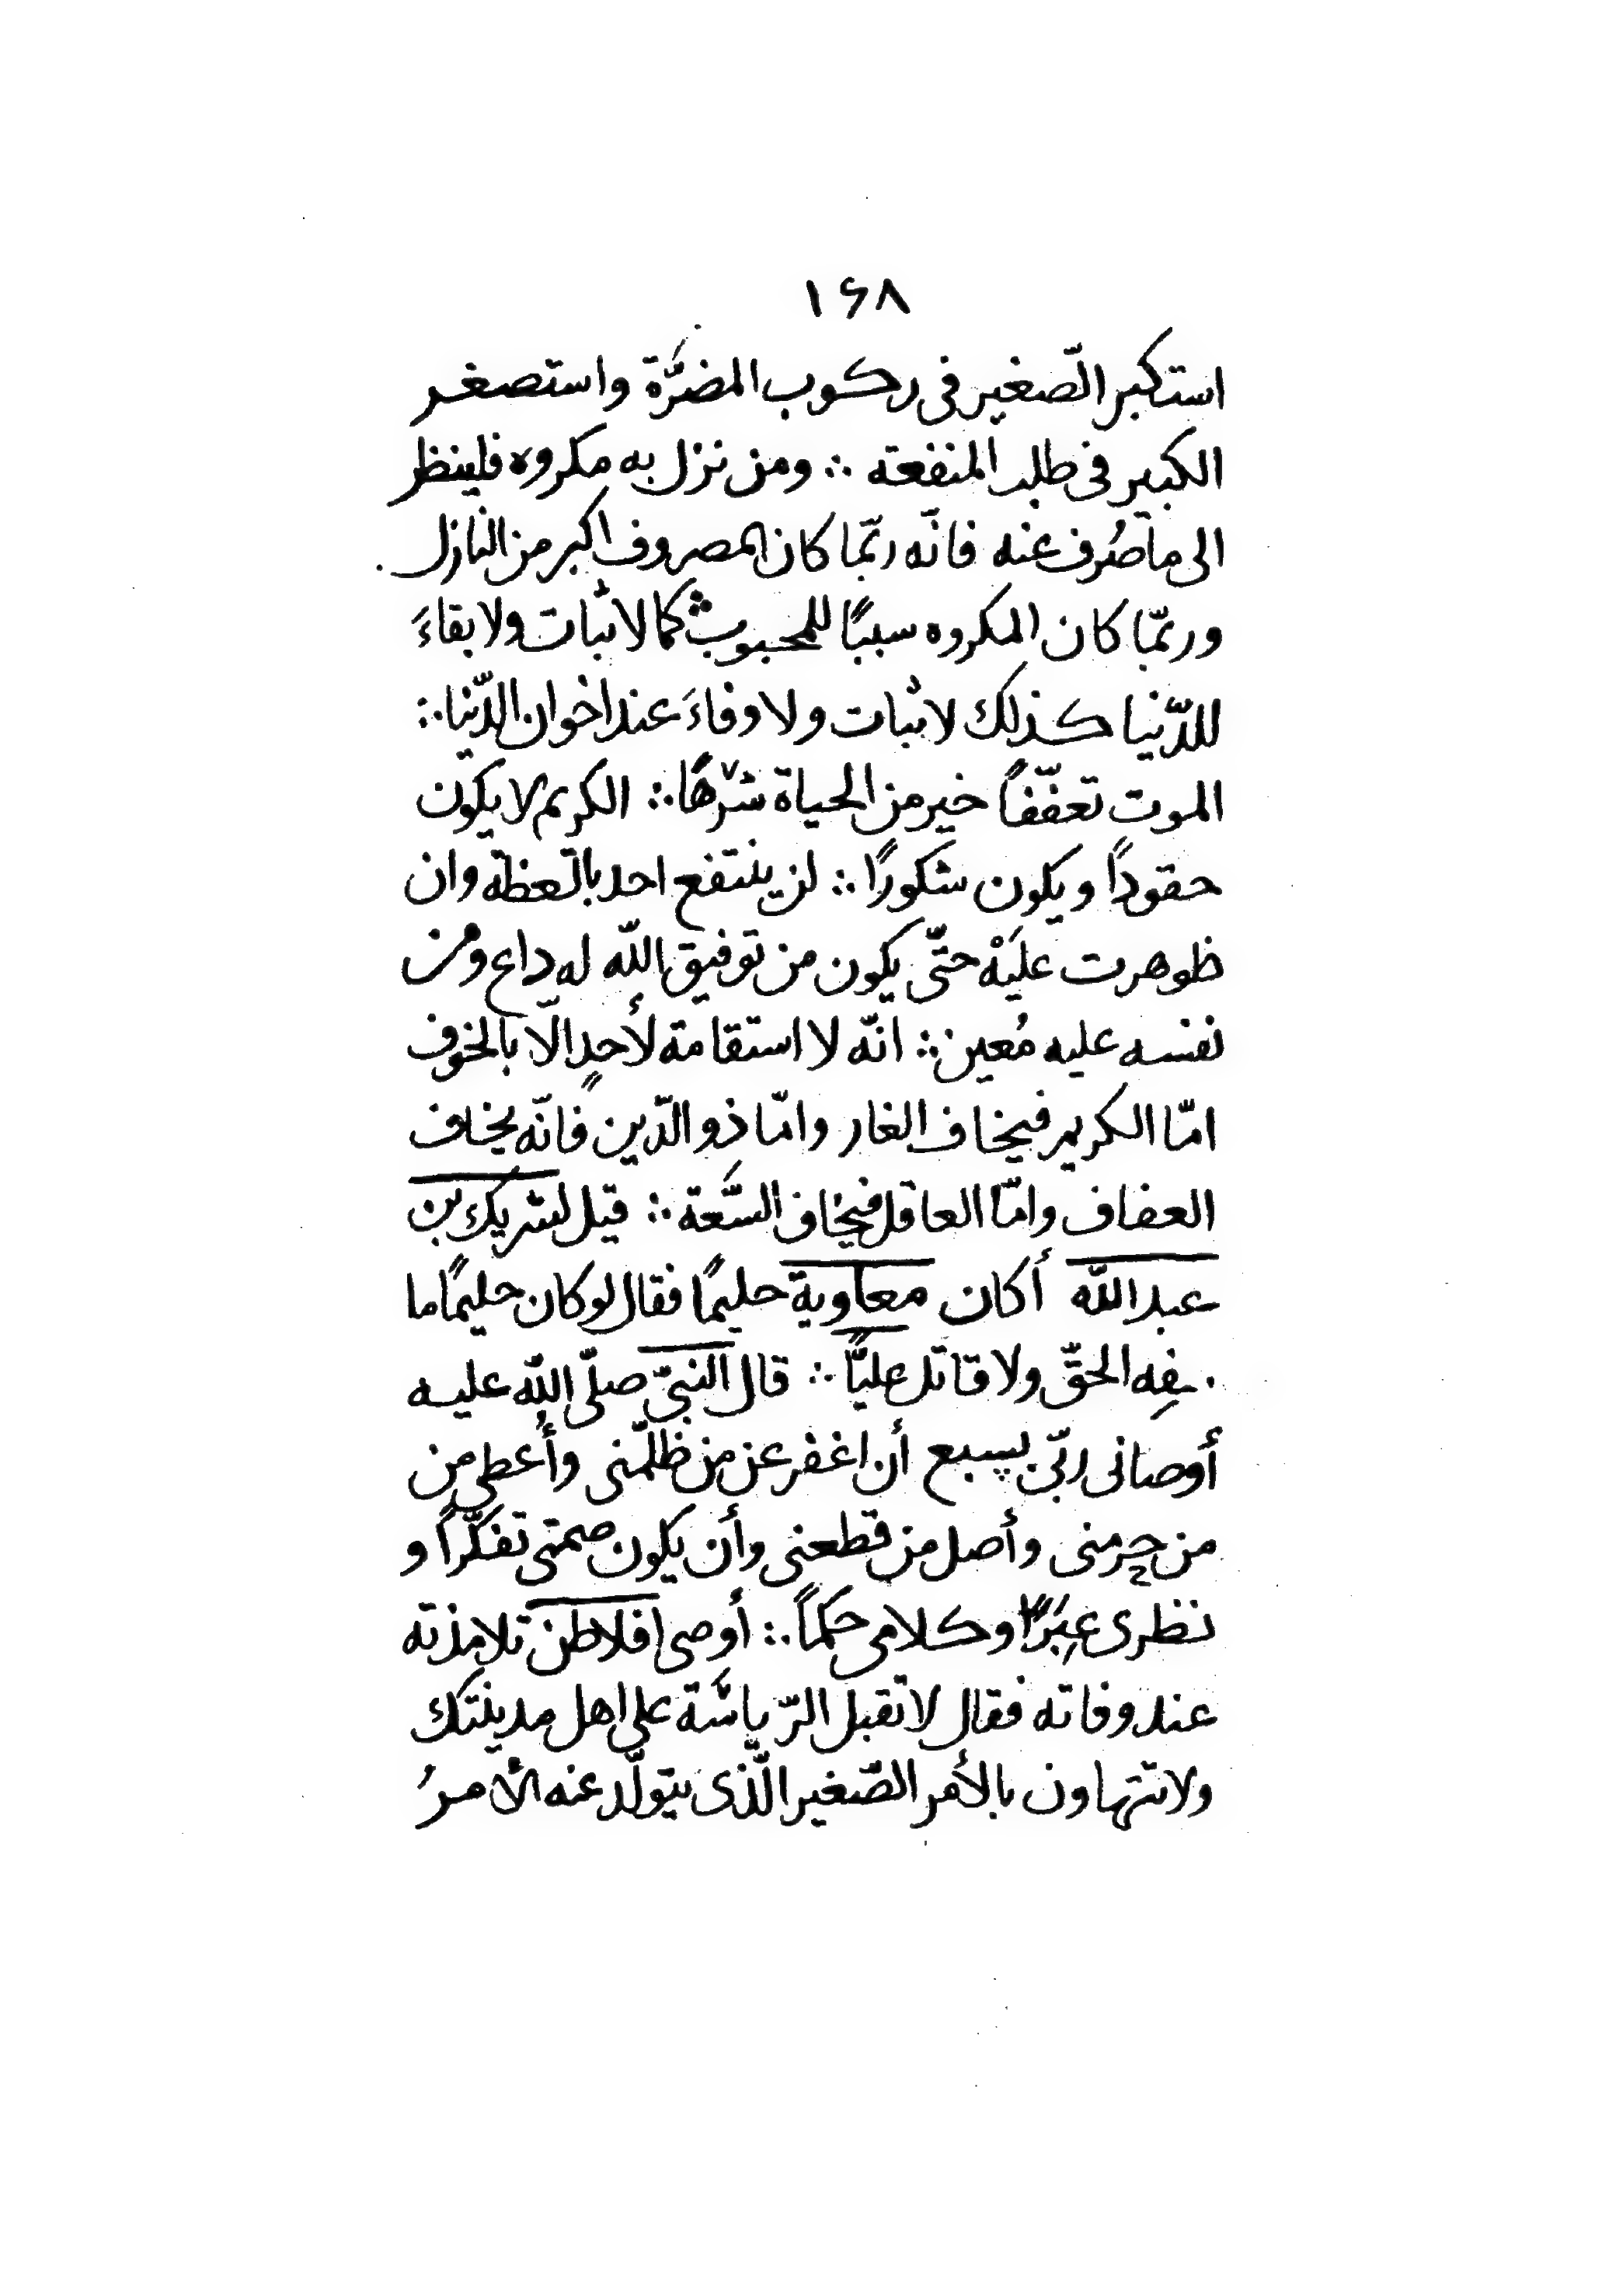 ١۶٨
استكبر الصّغير فى ركوب المضرَّة واستصغر
الكبير فى طلب المنفعة ∴ ومن نزل به مكروه فلينظر
الى ما صُرف عنه فانّه ربّما كان المصروف اكبر من النازل
وربّما كان المكروه سببًا للمحبوب ∴ كما لا ثبات ولا بقاءَ
للدّنيا كذلك لا ثبات ولا وفاءَ عند اخوان الدّنيا ∴
الموت تعفّفاً خير من الحياة شرْهًا ∴ الكريم لا يكون
حقوداً ويكون شكورًا ∴ لن ينتفع احد بالعظة وان
ظوهرت عليَهْ حتّى يكون من توفيق اللّه له داع ومن
نفسه عليه مُعين ∴ انّه لا استقامة لأحدٍ الّا بالخوف
امّا الكريم فيخاف العار وامّا ذو الدّين فانّه يخاف
العفاف وامّا العاقل فيخاف السَّعة ∴ قيل لشريك بن
عبد اللّه أكان معاوية حليمًا فقال لو كان حليمًا ما
سفِه الحقّ ولا قاتل عليًّا ∴ قال النبىّ صلّى اللّه عليه
أوصانى ربّى بسبع أن اغفر عن من ظلمنى وأُعطى من
من حرمنى وأصل من قطعنى وأن يكون صمتى تفكّراً و
نظرى عِبَرًا وكلامى حكماً ∴ أوصى افلاطن تلامذته
عند وفاته فقال لا تقبل الرّياسَة على اهل مدينتك
ولا تتهاون بالأمر الصّغير الّذى يتولّد عنه الأمرُ